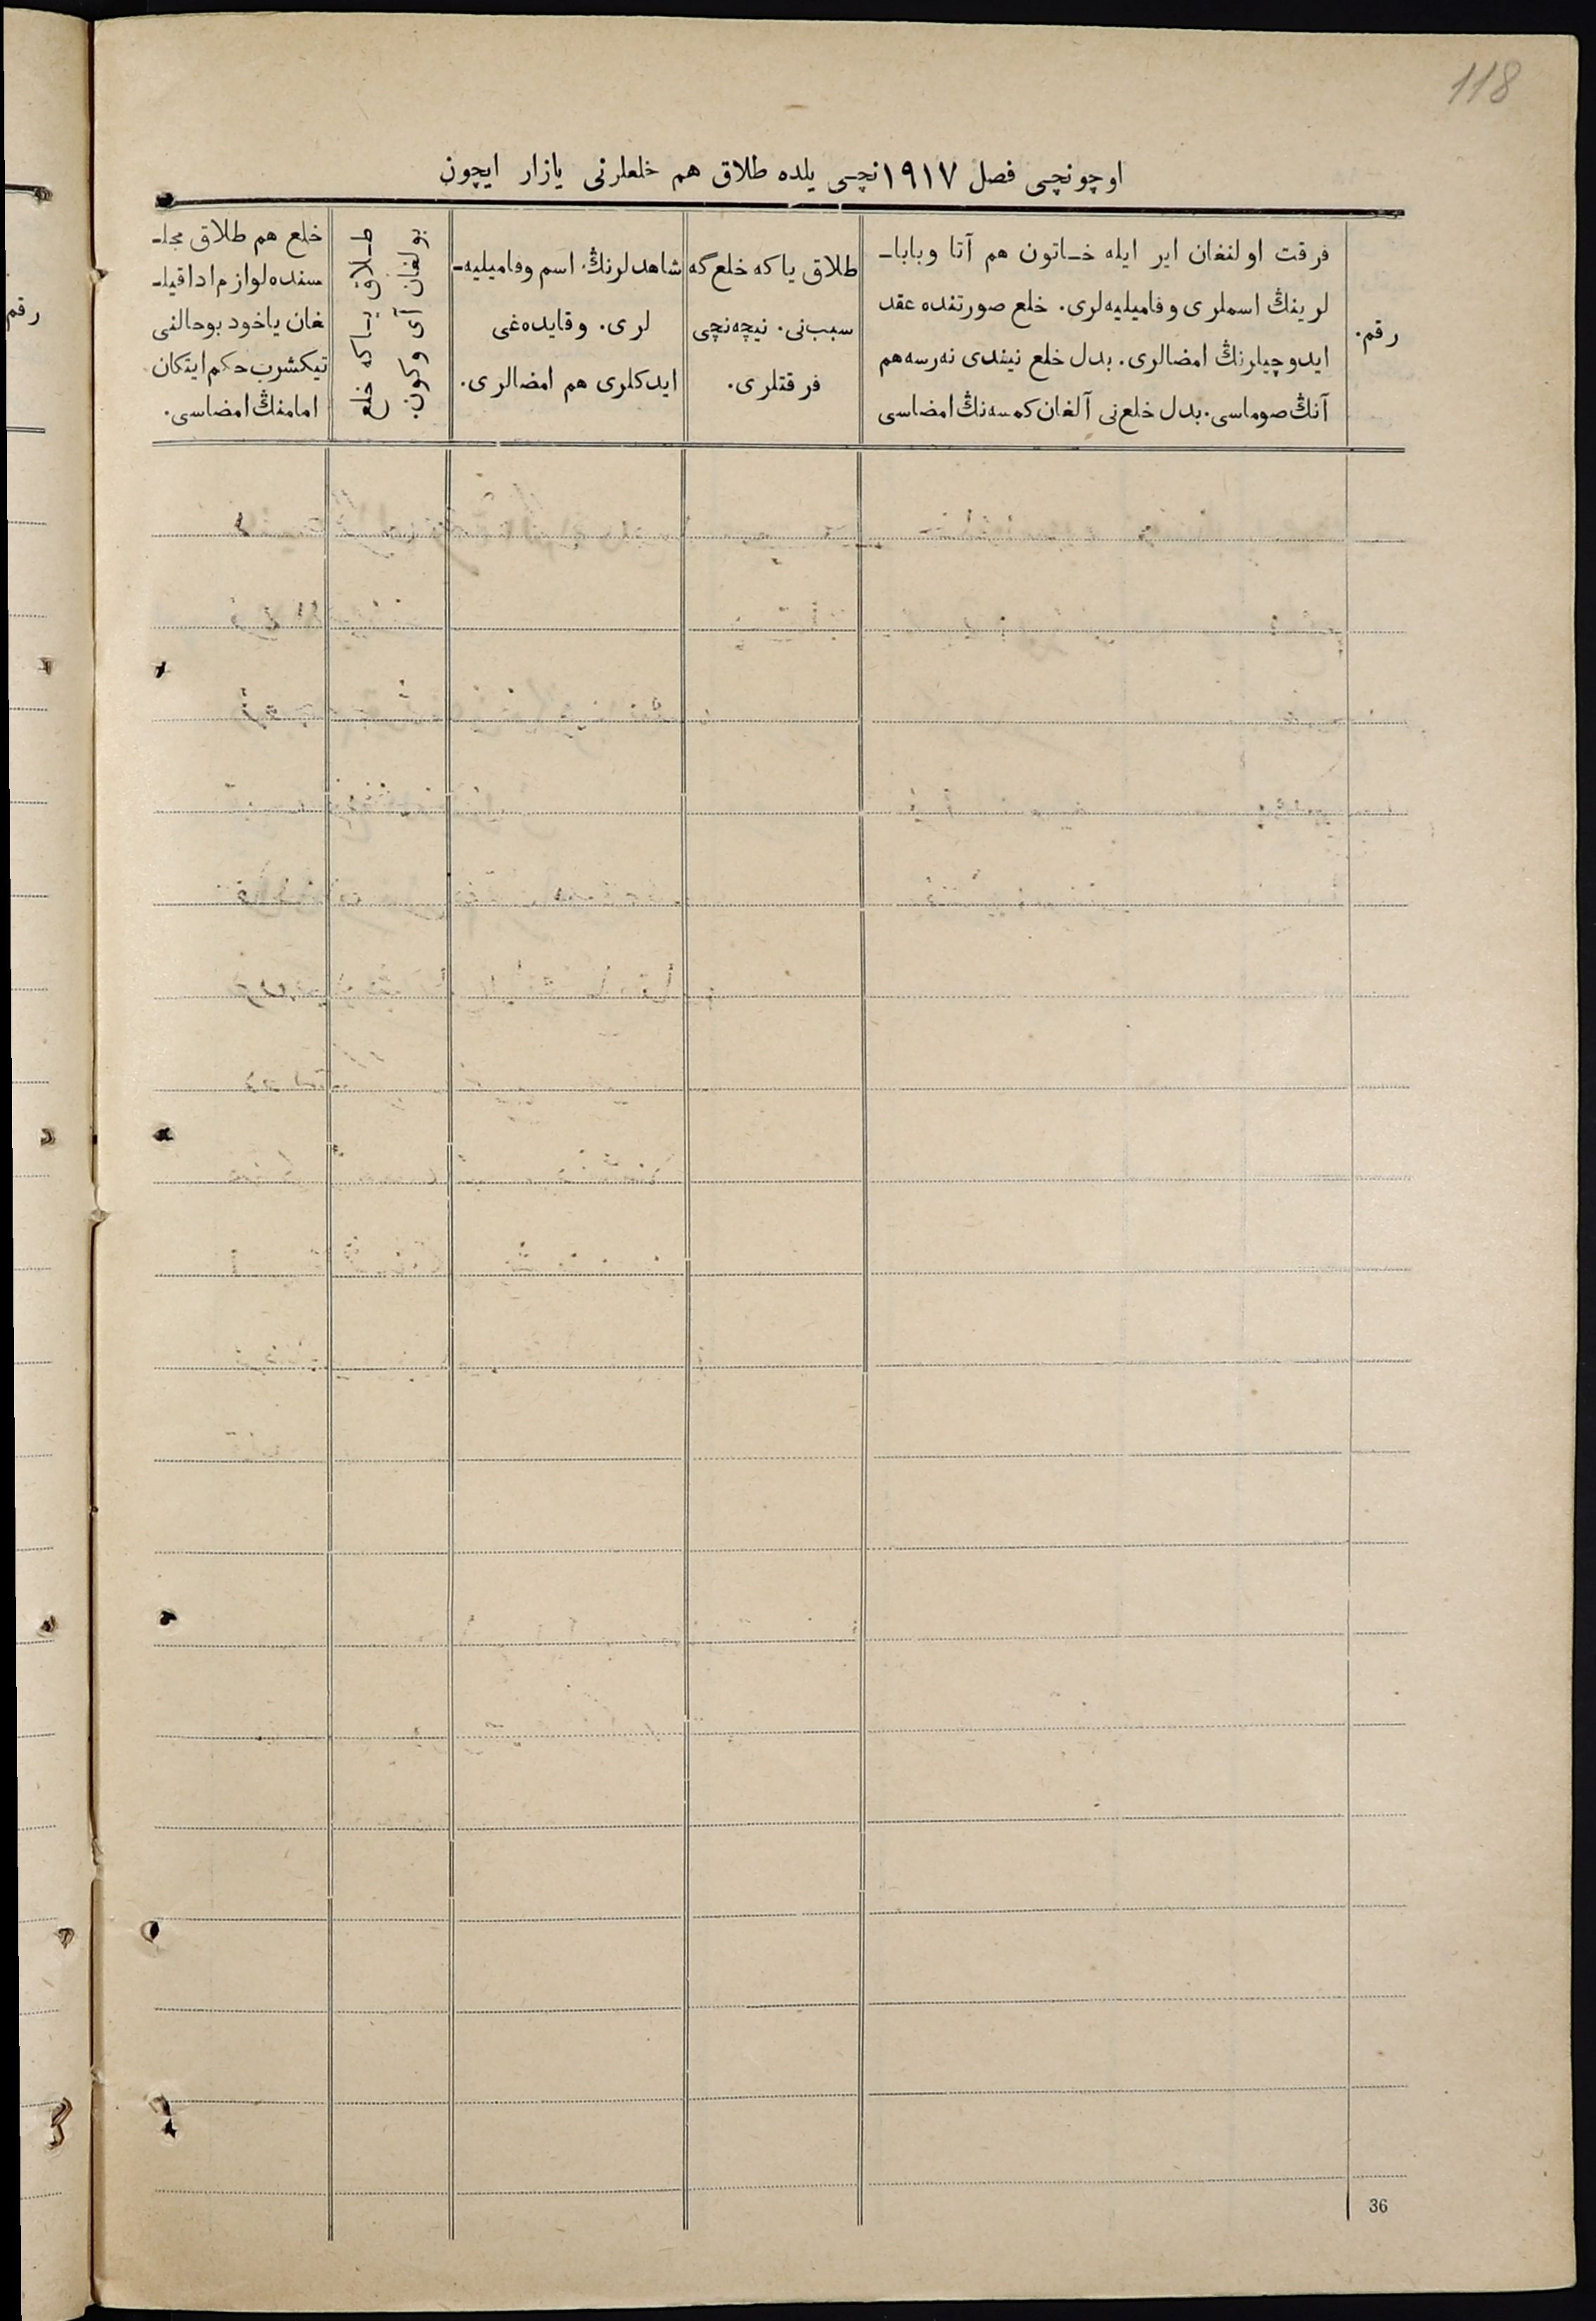 118
اوچونچی فصل ۱۹۱۷نچی یلده طلاق هم خلعلرنی یازار ایچون
رقم.
فرقت اولنغان ایر ایله خاتون هم آتا وبابا‌ـ
لرینڭ اسملری وفامیلیه‌لری. خلع صورتنده عقد
ایدوچیلرنڭ امضالری. بدل خلع نیندی نه‌رسه هم
آنڭ صوماسی. بدل خلع نی آلغان کمسه‌نڭ امضاسی
طلاق یاکه خلع گه
سبب نی. نیچه نچی
فرقتلری.
شاهدلرنڭ اسم وفامیلیه‌ـ
لری. وقایده‌غی
ایدکلری هم امضالری.
طلاق یاکه خلع
بولغان آی وکون.
خلع هم طلاق مجلـ
سنده لوازم ادا قیلـ
غان یاخود بوحالنی
تیکشرب حکم ایتکان
امامنڭ امضاسی.
رقم
36